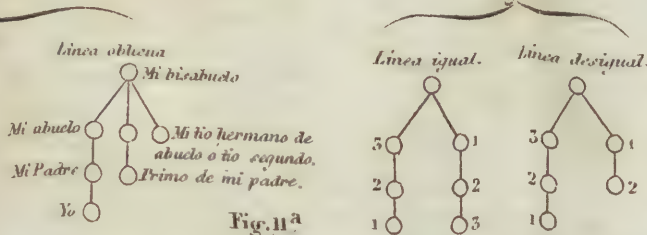 Linea obliena
Mi bisabuelo
Mi abuelo
Mi tio hermano de
abuelo ó tio segundo.
Mi Padre
Primo de mi padre.
Yo
Fig. 11ª
Linea igual.
3 1
2 2
1 3
Linea desigual.
3 1
2 2
1